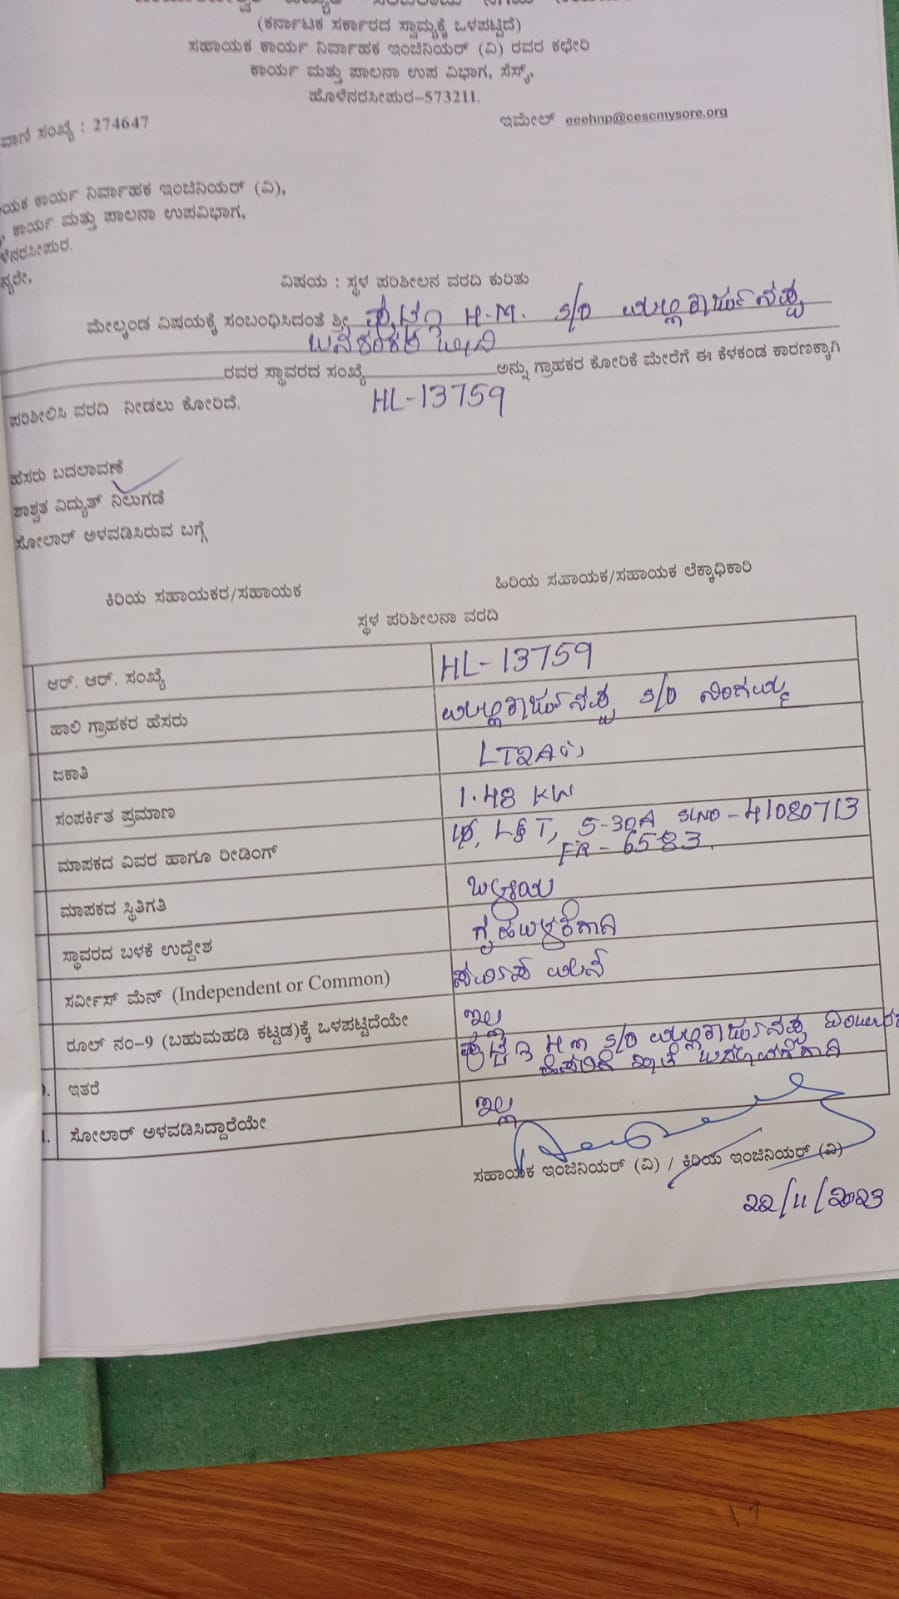 (ಕರ್ನಾಟಕ ಸರ್ಕಾರದ ಸ್ವಾಮ್ಯಕ್ಕೆ ಒಳಪಟ್ಟಿದೆ)
ಸಹಾಯಕ ಕಾರ್ಯ ನಿರ್ವಾಹಕ ಇಂಜಿನಿಯರ್ (ವಿ) ರವರ ಕಛೇರಿ
ಕಾರ್ಯ ಮತ್ತು ಪಾಲನಾ ಉಪ ವಿಭಾಗ, ಸೆಸ್ಕ್,
ಹೊಳೆನರಸೀಪುರ-573211.
ವಾಣಿ ಸಂಖ್ಯೆ : 274647 ಇಮೇಲ್ eeehnp@cescmysore.org
ಯಕ ಕಾರ್ಯ ನಿರ್ವಾಹಕ ಇಂಜಿನಿಯರ್ (ವಿ),
ಕಾರ್ಯ ಮತ್ತು ಪಾಲನಾ ಉಪವಿಭಾಗ,
ಳೆನರಸೀಪುರ.
ನ್ಯರೇ,
ವಿಷಯ : ಸ್ಥಳ ಪರಿಶೀಲನ ವರದಿ ಕುರಿತು
ಮೇಲ್ಕಂಡ ವಿಷಯಕ್ಕೆ ಸಂಬಂಧಿಸಿದಂತೆ ಶ್ರೀ H.M. S/O ಮಲ್ಲಿಕಾರ್ಜುನಪ್ಪ
ರವರ ಸ್ಥಾವರದ ಸಂಖ್ಯೆ ಅನ್ನು ಗ್ರಾಹಕರ ಕೋರಿಕೆ ಮೇರೆಗೆ ಈ ಕೆಳಕಂಡ ಕಾರಣಕ್ಕಾಗಿ
ಪರಿಶೀಲಿಸಿ ವರದಿ ನೀಡಲು ಕೋರಿದೆ. HL-13759
ಹೆಸರು ಬದಲಾವಣೆ
ಶಾಶ್ವತ ವಿದ್ಯುತ್ ನಿಲುಗಡೆ
ಸೋಲಾರ್ ಅಳವಡಿಸಿರುವ ಬಗ್ಗೆ
ಕಿರಿಯ ಸಹಾಯಕರ/ಸಹಾಯಕ ಹಿರಿಯ ಸಹಾಯಕ/ಸಹಾಯಕ ಲೆಕ್ಕಾಧಿಕಾರಿ
ಸ್ಥಳ ಪರಿಶೀಲನಾ ವರದಿ
ಆರ್. ಆರ್. ಸಂಖ್ಯೆ HL-13759
ಹಾಲಿ ಗ್ರಾಹಕರ ಹೆಸರು ಮಲ್ಲಿಕಾರ್ಜುನಪ್ಪ S/O
ಜಕಾತಿ LT2A
ಸಂಪರ್ಕಿತ ಪ್ರಮಾಣ 1.48 KW
ಮಾಪಕದ ವಿವರ ಹಾಗೂ ರೀಡಿಂಗ್ L&T, 5-30A SLNO-41080713
FR-6583.
ಮಾಪಕದ ಸ್ಥಿತಿಗತಿ
ಸ್ಥಾವರದ ಬಳಕೆ ಉದ್ದೇಶ ಗೃಹಬಳಕೆಗಾಗಿ
ಸರ್ವೀಸ್ ಮೆನ್ (Independent or Common)
ರೂಲ್ ನಂ-9 (ಬಹುಮಹಡಿ ಕಟ್ಟಡ)ಕ್ಕೆ ಒಳಪಟ್ಟಿದೆಯೇ ಇಲ್ಲ
ಇತರೆ S/O ಮಲ್ಲಿಕಾರ್ಜುನಪ್ಪ
ಸೋಲಾರ್ ಅಳವಡಿಸಿದ್ದಾರೆಯೇ ಇಲ್ಲ
ಸಹಾಯಕ ಇಂಜಿನಿಯರ್ (ವಿ) / ಕಿರಿಯ ಇಂಜಿನಿಯರ್ (ವಿ)
22/11/2023